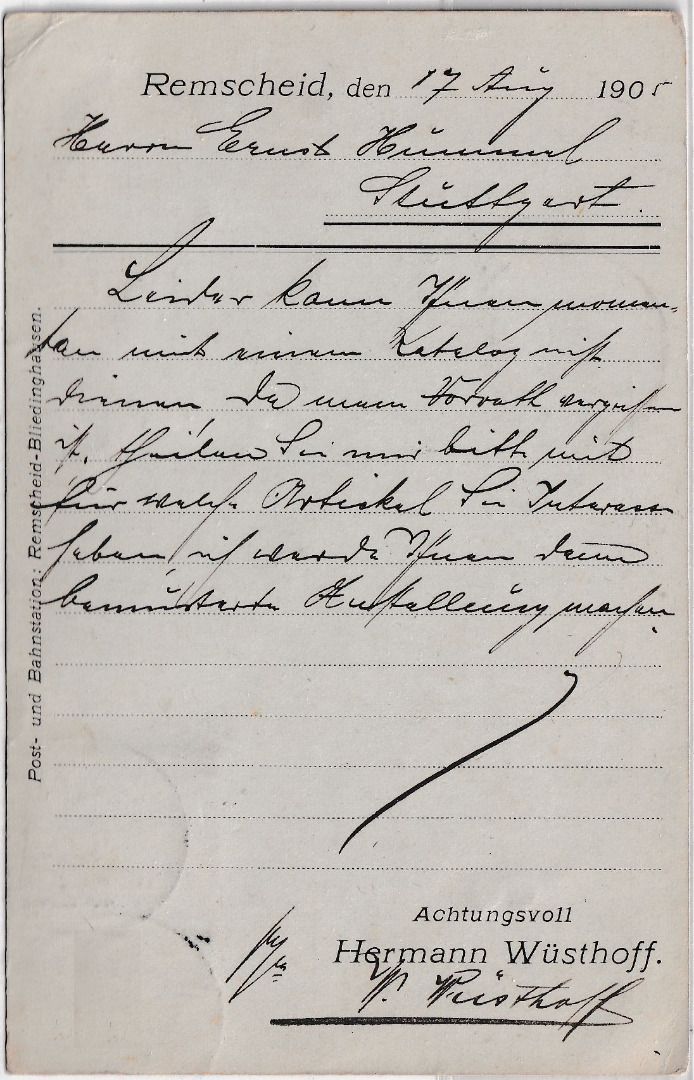 Remscheid, den 17 Aug 1905
Herrn Ernst Hummel
Stuttgart.
Leider kann Ihnen momen-
tan mit einem Katalog nicht
dienen da mein Vorrath vergriffen
ist, theilen Sie mir bitte mit
für welche Artickel Sie Interesse
haben, ich werde Ihnen dann
bemusterte Anstellung machen.
Post- und Bahnstation: Remscheid-Bliedinghausen.
Achtungsvoll
Hermann Wüsthoff.
W. Wüsthoff